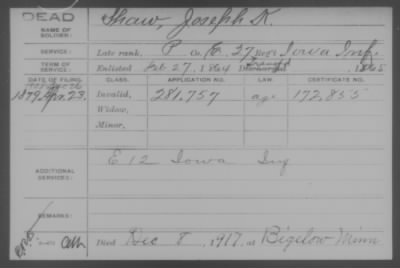 DEAD
NAME OF SOLDIER:
Shaw, Joseph K.
SERVICE:
Late rank, P Co. G, 27 Reg't Iowa Inf.
TERM OF SERVICE:
Enlisted Feb 27, 1864 Discharged 1865
DATE OF FILING. CLASS. APPLICATION NO. LAW CERTIFICATE NO.
1879 Apr. 23. Invalid, 281.757 age 172.855
Widow,
Minor,
ADDITIONAL SERVICES:
E 12 Iowa Inf
REMARKS:
Died Dec 8, 1917, at Bigelow Minn